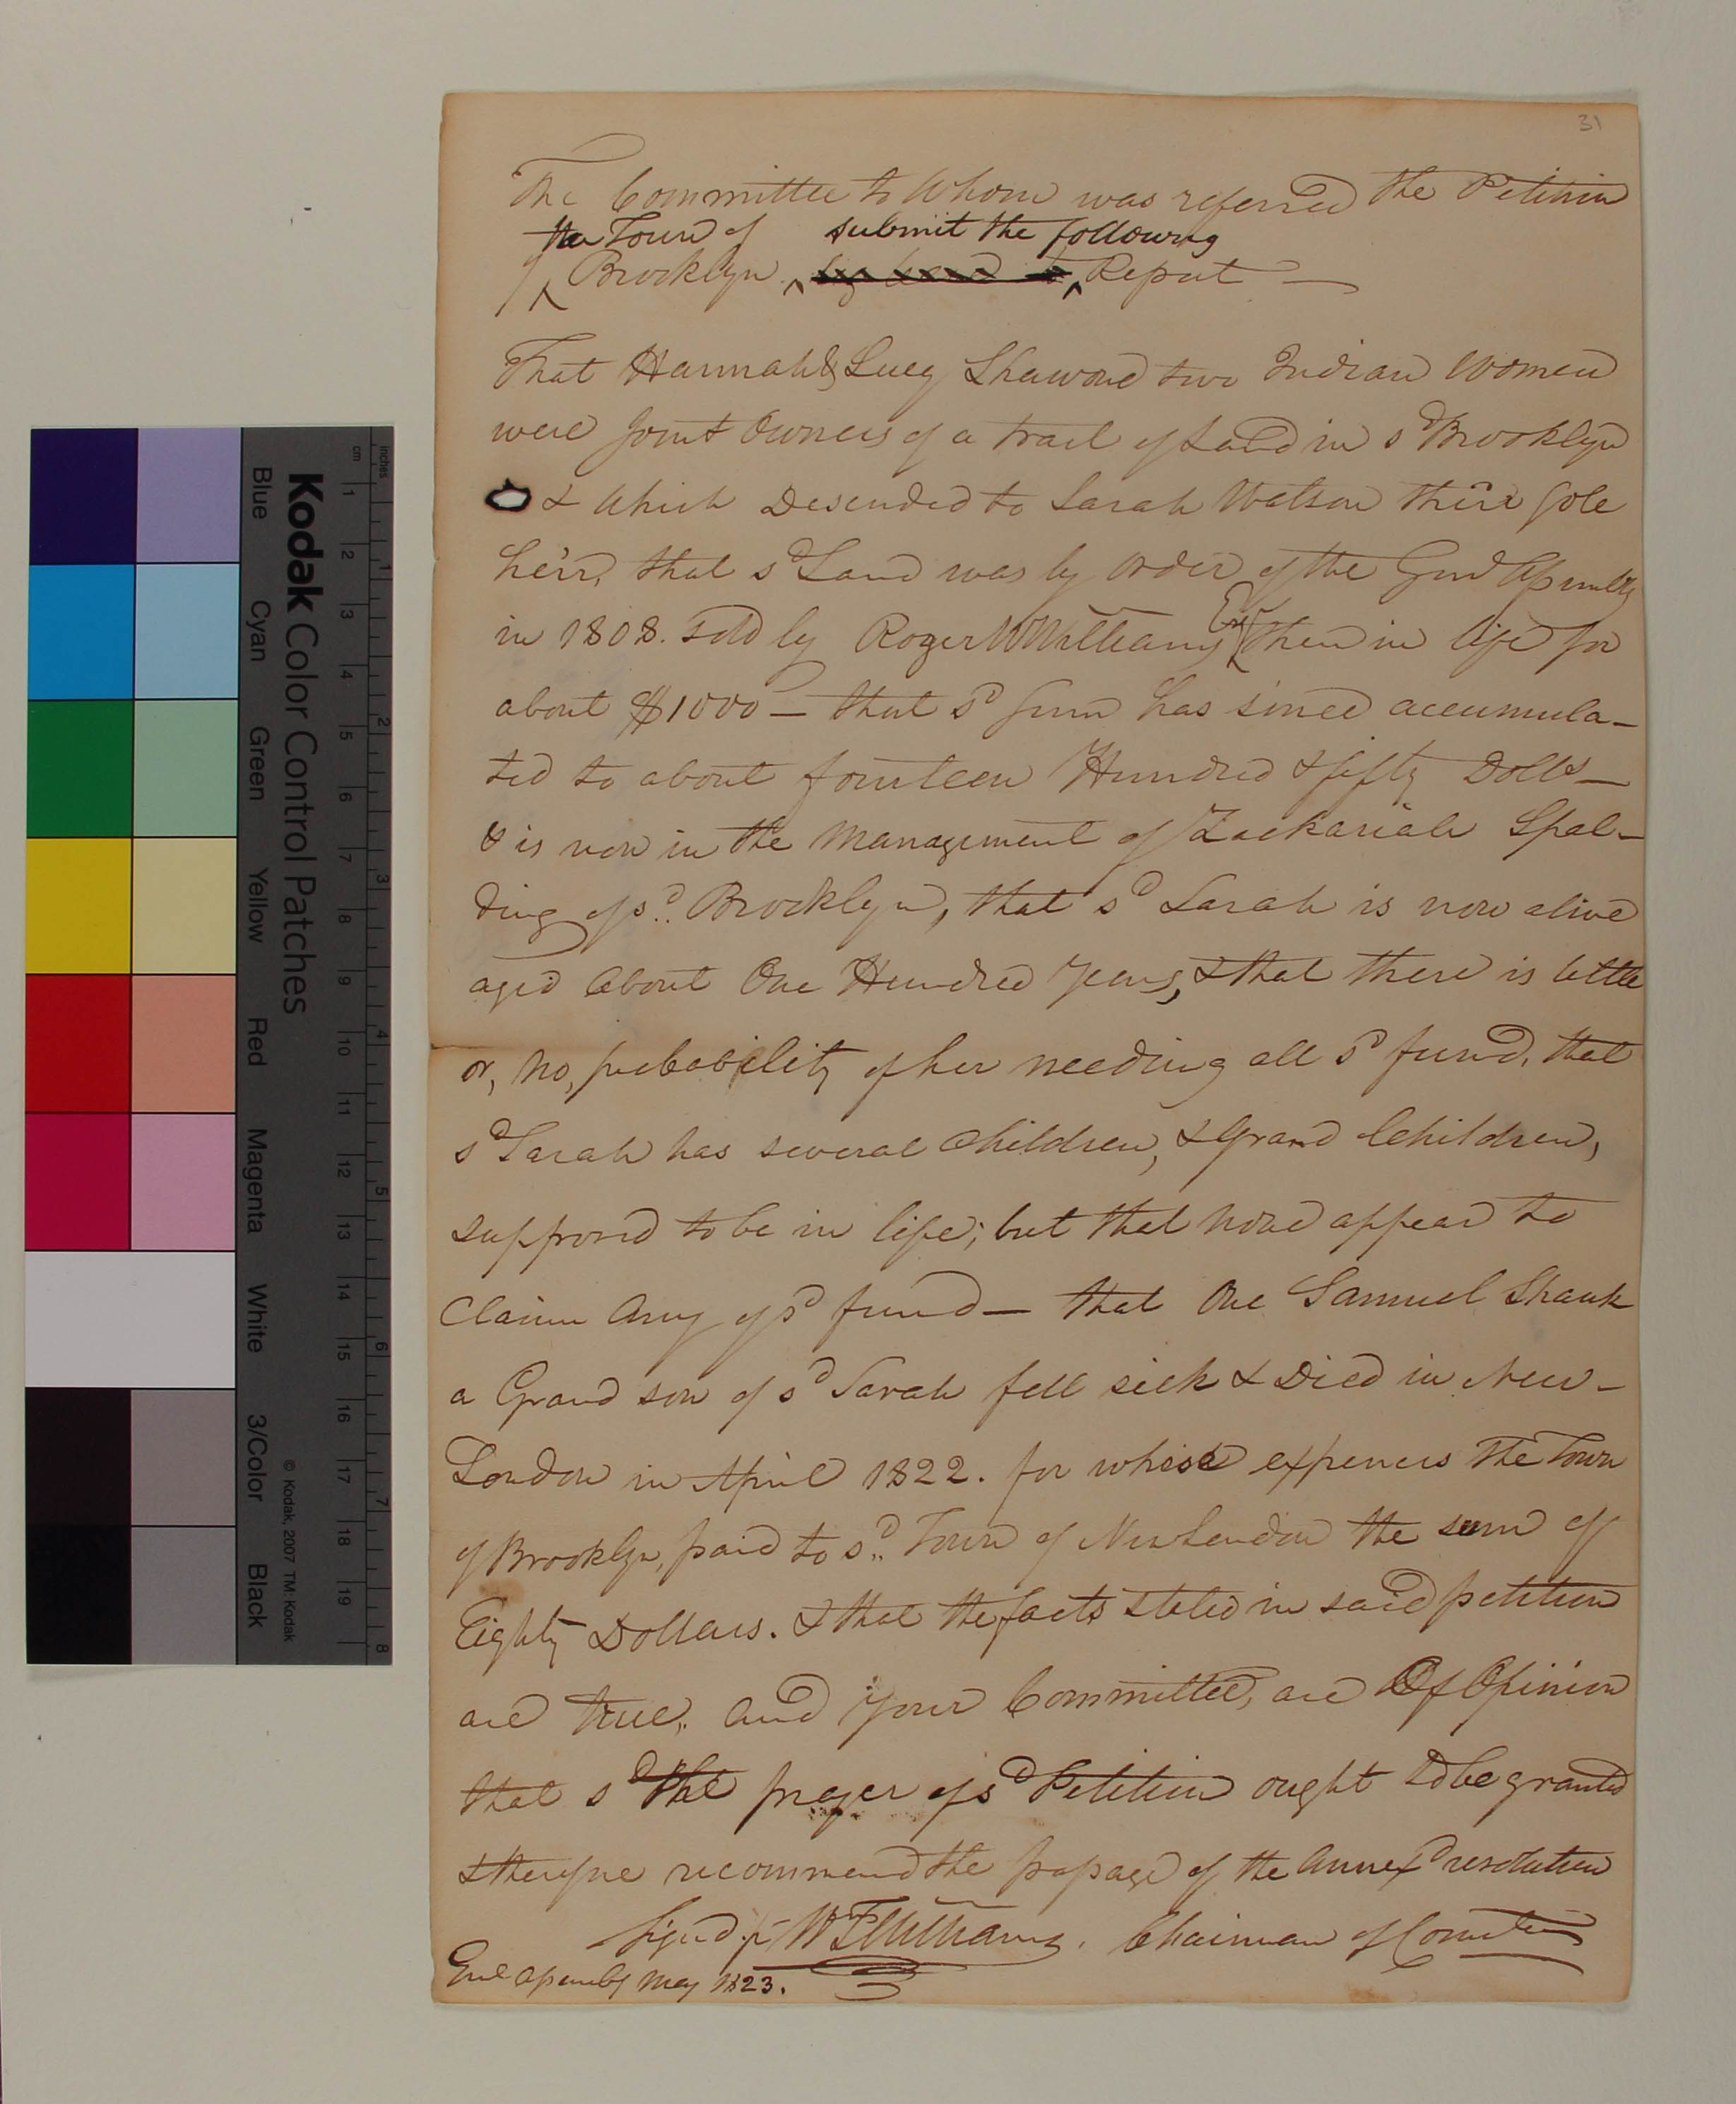 31
The Committee to Whom was referred the Petition
the Town of submit the following
of Brooklyn Report —
That Hannah & Lucy Shawond two Indian Women
were Joint Owners of a tract of Land in sd Brooklyn
& which Desended to Sarah Watson their Sole
heir, that sd Land was by order of the Genl Assembly
in 1808. sold by Roger W Williams Esqr then in life for
about $1000 — that sd Sum has since accumula-
ted to about fourteen Hundred & fifty Dolls —
& is now in the Management of Zackariah Spal-
ding of sd. Brooklyn, that sd Sarah is now alive
aged about One Hundred Years, & that there is little
or, no, probability of her needing all sd fund, that
sd Sarah has several children, & Grand Children,
supposed to be in life; but that none appear to
Claim Any of sd fund — that One Samuel Shauk
a Grand son of sd Sarah fell sick & Died in New-
London in April 1822. for whose expences The Town
of Brooklyn, paid to sd. Town of New London the sum of
Eighty Dollars. & that the facts stated in said petition
are true, And Your Committee, are Of Opinion
that sd the prayer of sd Petition ought to be granted
& therefore recommend the passage of the annexd resolution
Signd pr W T Williams, Chairman of Comttee
Genl Assembly May 1823.
Kodak Color Control Patches
© Kodak, 2007 TM: Kodak
Blue Cyan Green Yellow Red Magenta White 3/Color Black
cm 1 2 3 4 5 6 7 8 9 10 11 12 13 14 15 16 17 18 19
inches 1 2 3 4 5 6 7 8